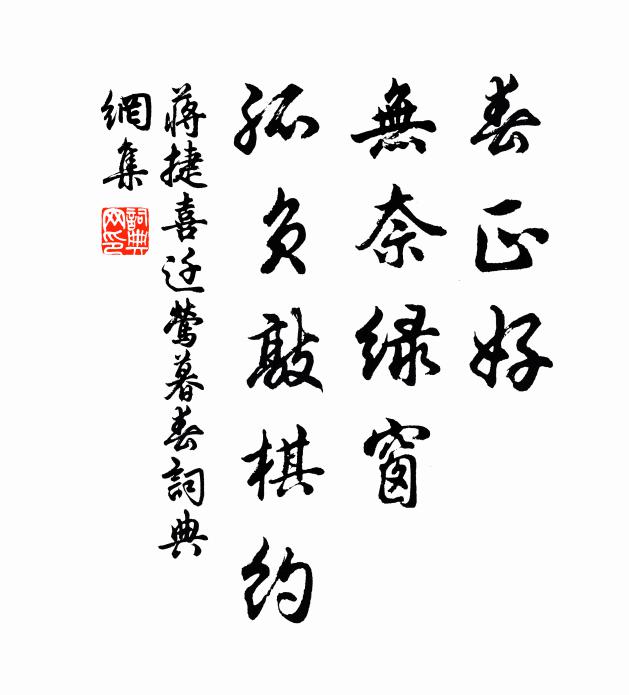 春正好
無奈緑窗
孤負敲棋約
蔣捷喜迁鶯暮春詞典
網集
詞典
网印